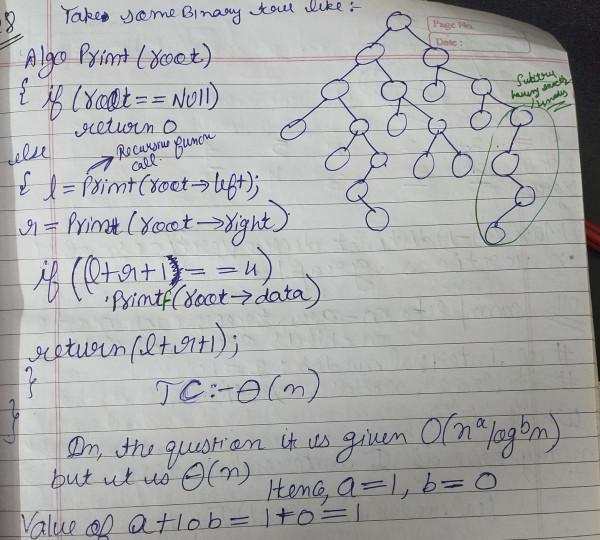 8
Take some Binary tree like :-
Page No.
Date :
Algo Print (root)
{ if (root == Null)
return 0
else
Recursive function call.
{ l = Print (root → left);
r = Print (root → right)
if ((l+r+1) == 4)
Printf (root → data)
return (l+r+1);
}
}
TC :- Θ(n)
Subtree having exactly 4 nodes
On, the question it is given O(n^a log^b n)
but it is Θ(n)
Henc, a = 1, b = 0
Value of a+10b = 1+0 = 1